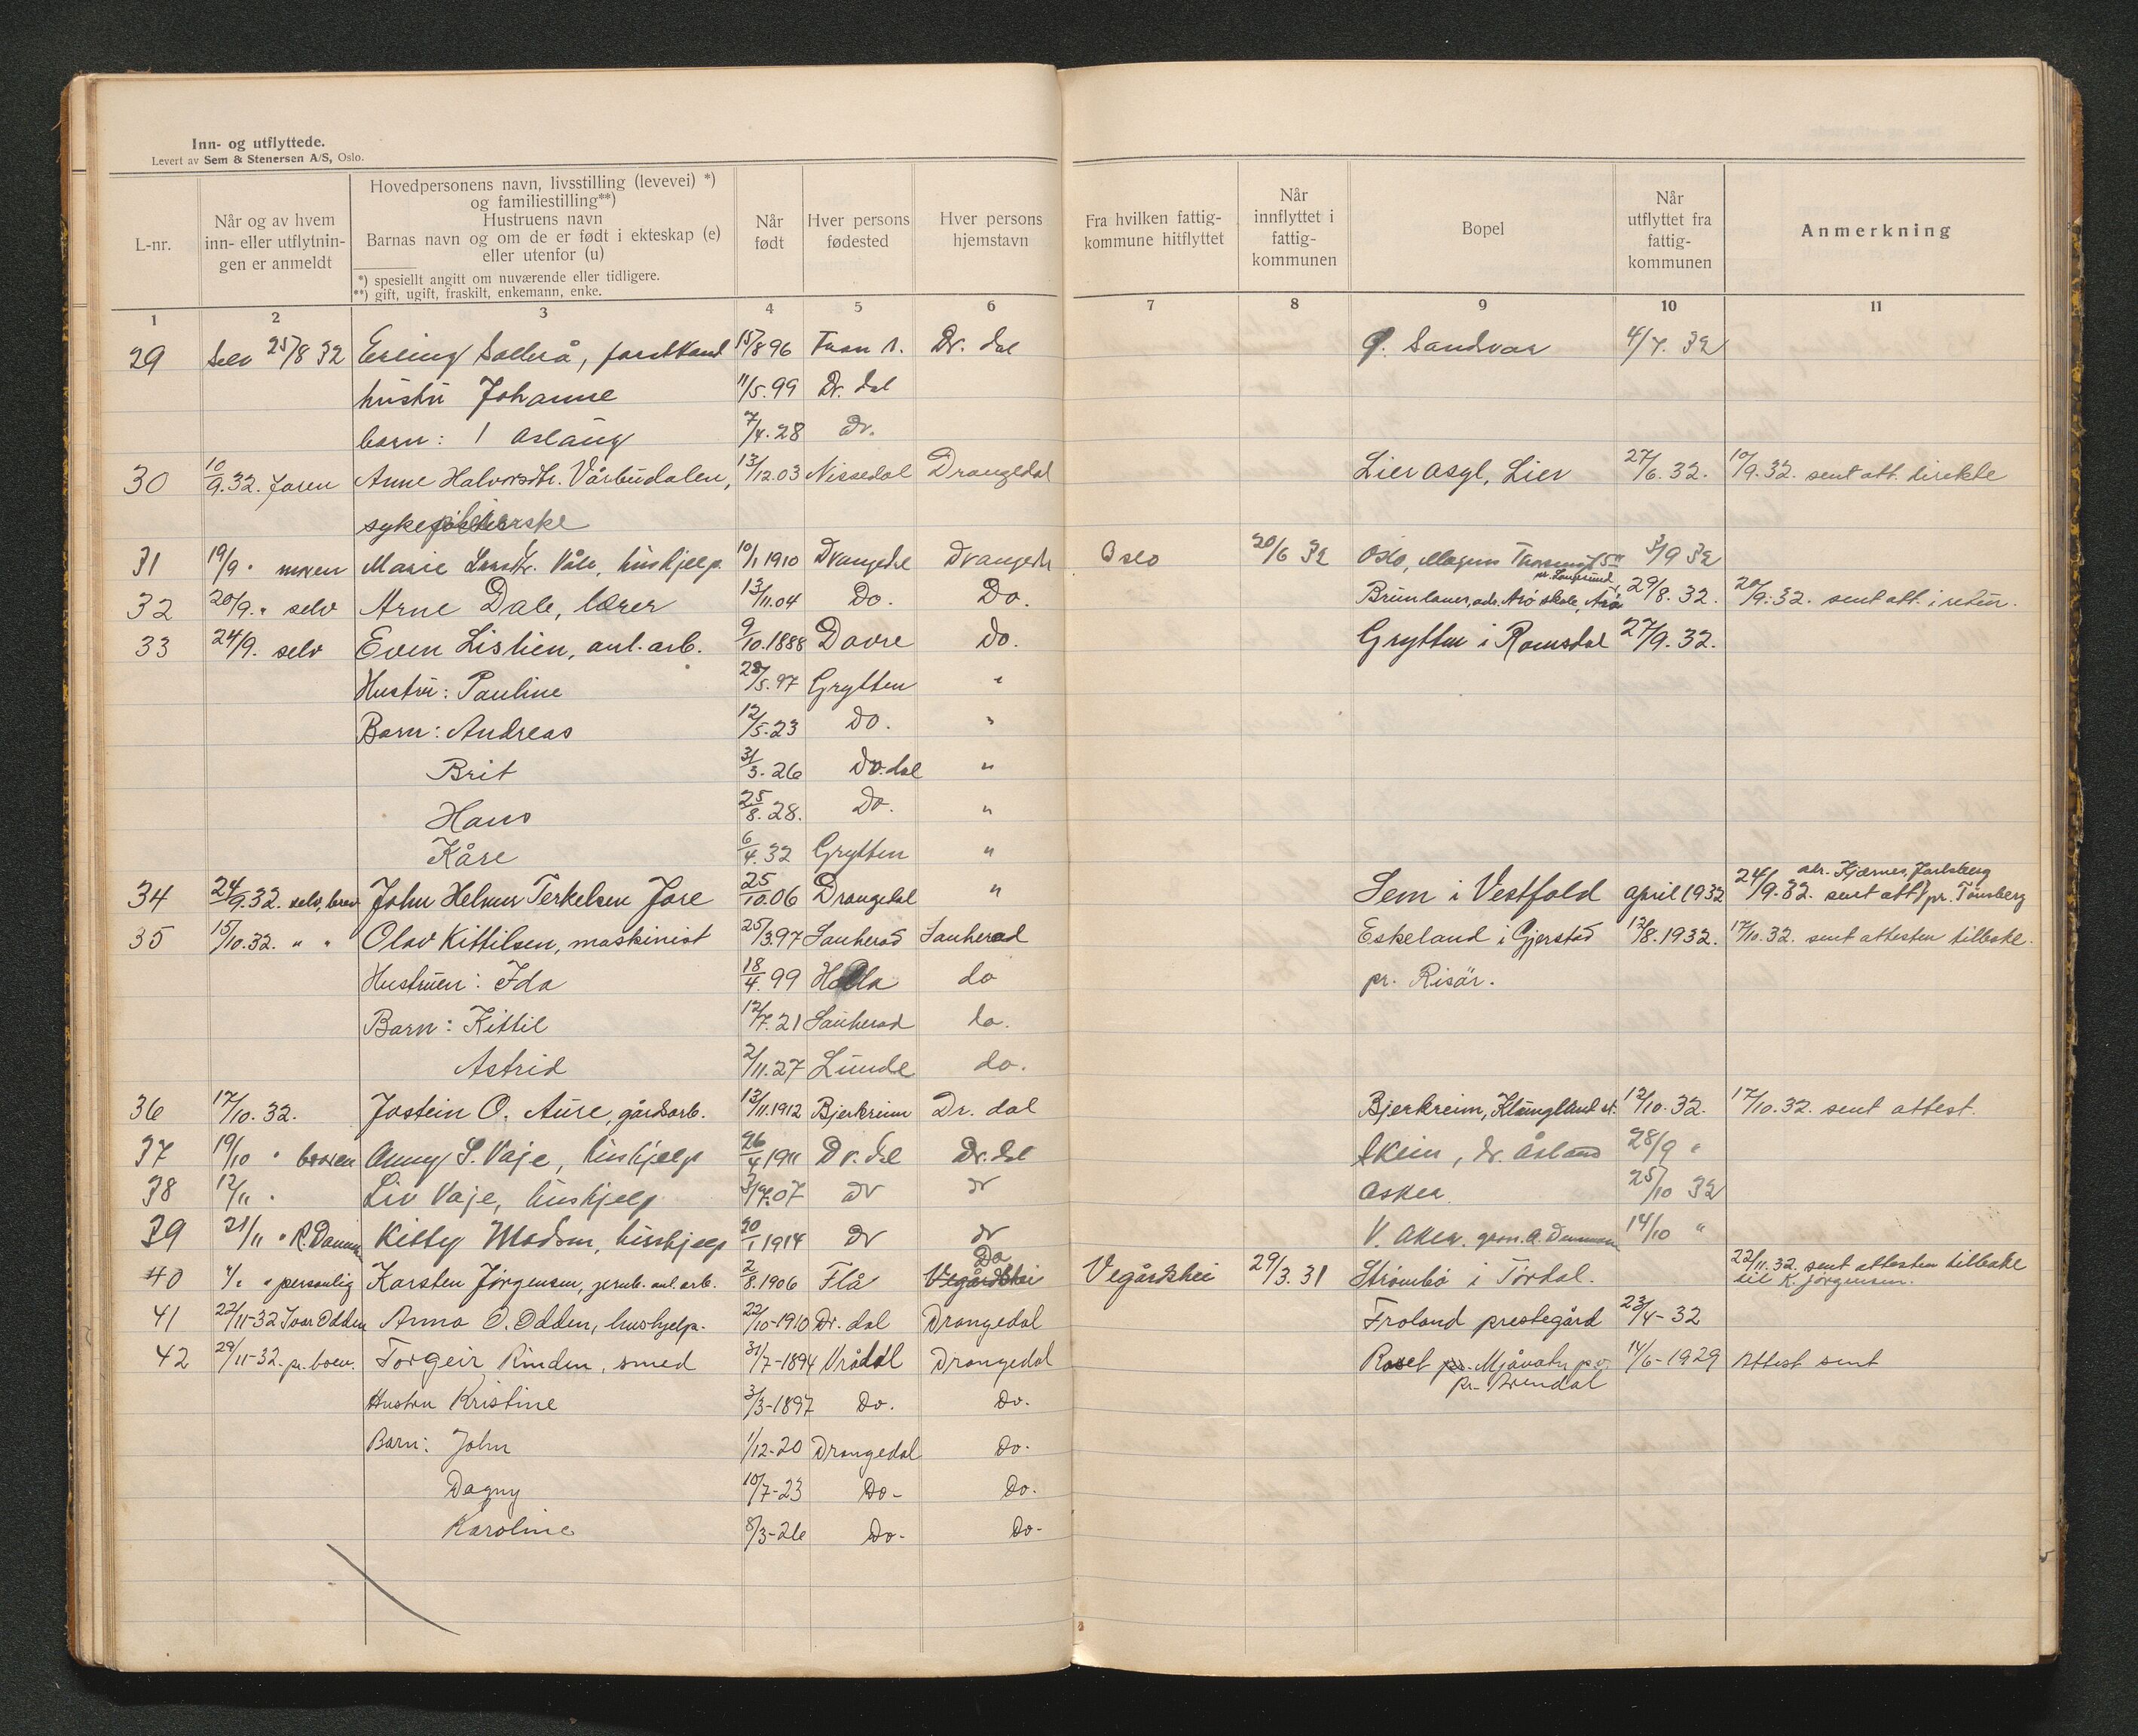 Inn- og utflyttede.
Levert av Sem & Stenersen A/S, Oslo.
L-nr.
Når og av hvem
inn- eller utflytnin-
gen er anmeldt
Hovedpersonens navn, livsstilling (levevei) *)
og familiestilling**)
Hustruens navn
Barnas navn og om de er født i ekteskap (e)
eller utenfor (u)
*) spesiellt angitt om nuværende eller tidligere.
**) gift, ugift, fraskilt, enkemann, enke.
Når
født
Hver persons
fødested
Hver persons
hjemstavn
Fra hvilken fattig-
kommune hitflyttet
Når
innflyttet i
fattig-
kommunen
Bopel
Når
utflyttet fra
fattig-
kommunen
Anmerkning
1 2 3 4 5 6 7 8 9 10 11
29 Selv 25/8 32 Erling 15/8 96 Dr. dal Sandvar 4/7. 32
hustru Johanne 11/5.99 Dr. dal
barn: 1 Aslaug 7/4.28 Dr.
30 10/9.32. faren Anne Halvorsdtr. Vårbudalen, 13/12.03 Nissedal Drangedal Lier asyl, Lier 27/6.32. 10/9.32. sent att. direkte
sykepleierske
31 19/9 " moren Marie Våle, hushjelp 10/1 1910 Drangedal Drangedal Oslo 20/6 32 Oslo, Magnus 3/9 32
32 20/9. " selv Arne Dale, lærer 13/11.04 Do. Do. Brunlanes, adr. Arö skole, Arö pr. Langesund 29/8.32. 20/9.32. sent att. i retur.
33 24/9. selv Even Lislien, anl. arb. 9/10.1888 Dovre Do. Grytten i Romsdal 27/9.32.
Hustru: Pauline 28/5.97 Grytten "
Barn: Andreas 12/5.23 Do. "
Brit 31/3.26 Dr. dal "
Hans 25/8.28. Do. "
Kåre 6/4.32 Grytten "
34 24/9.32. selv, brev John Helmer Terkelsen Jore 25/10.06 Drangedal " Sem i Vestfold april 1932 24/9.32. sent att. adr. Kjærnes, Jarlsberg pr. Tönsberg
35 15/10.32. " " Olav Kittilsen, maskinist 25/3.97 Sauherad Sauherad Eskeland i Gjerstad 12/8.1932. 17/10.32. sent attesten tilbake.
Hustruen: Ida 18/4.99 Holla do pr. Risör.
Barn: Kittil 12/7.21 Sauherad do.
Astrid 2/11.27 Lunde do.
36 17/10.32. Jostein O. Aure, gårdsarb. 13/11.1912 Bjerkreim Dr. dal Bjerkreim, Klungland st. 12/10.32. 17/10.32. sent attest.
37 19/10 " broren Anny S. Vaje, hushjelp 26/4 1911 Dr. dal Dr. dal Skien, Dr. Åsland 28/9 "
38 12/11 " Liv Vaje, hushjelp 07 Dr Dr Asker 25/10 32
39 21/11 " Kitty Madsen, hushjelp 20/1 1914 Dr Dr V. Aker. 14/10 "
40 "/" " personlig Karsten Jörgensen, jernb. anl. arb. 2/8.1906 Flå Vegårdshei Do Vegårdshei 29/3.31 Strömbö i Tördal. 22/11.32. sent attesten tilbake
til K. Jörgensen.
41 22/11-32 Ivar Odden Anna O. Odden, hushjelp. 22/10-1910 Dr. dal Drangedal Froland prestegård 23/4-32
42 29/11-32. pr. brev. Torgeir Rinden, smed 31/7-1894 Vrådal Drangedal Roset Mjåvatn p.å. 14/6-1929 Attest sent
pr. Arendal
Hustru Kristine 3/3-1897 Do. Do.
Barn: John 1/12-20 Drangedal Do.
Dagny 10/7-23 Do- Do.
Karoline 8/3-26 Do- Do-